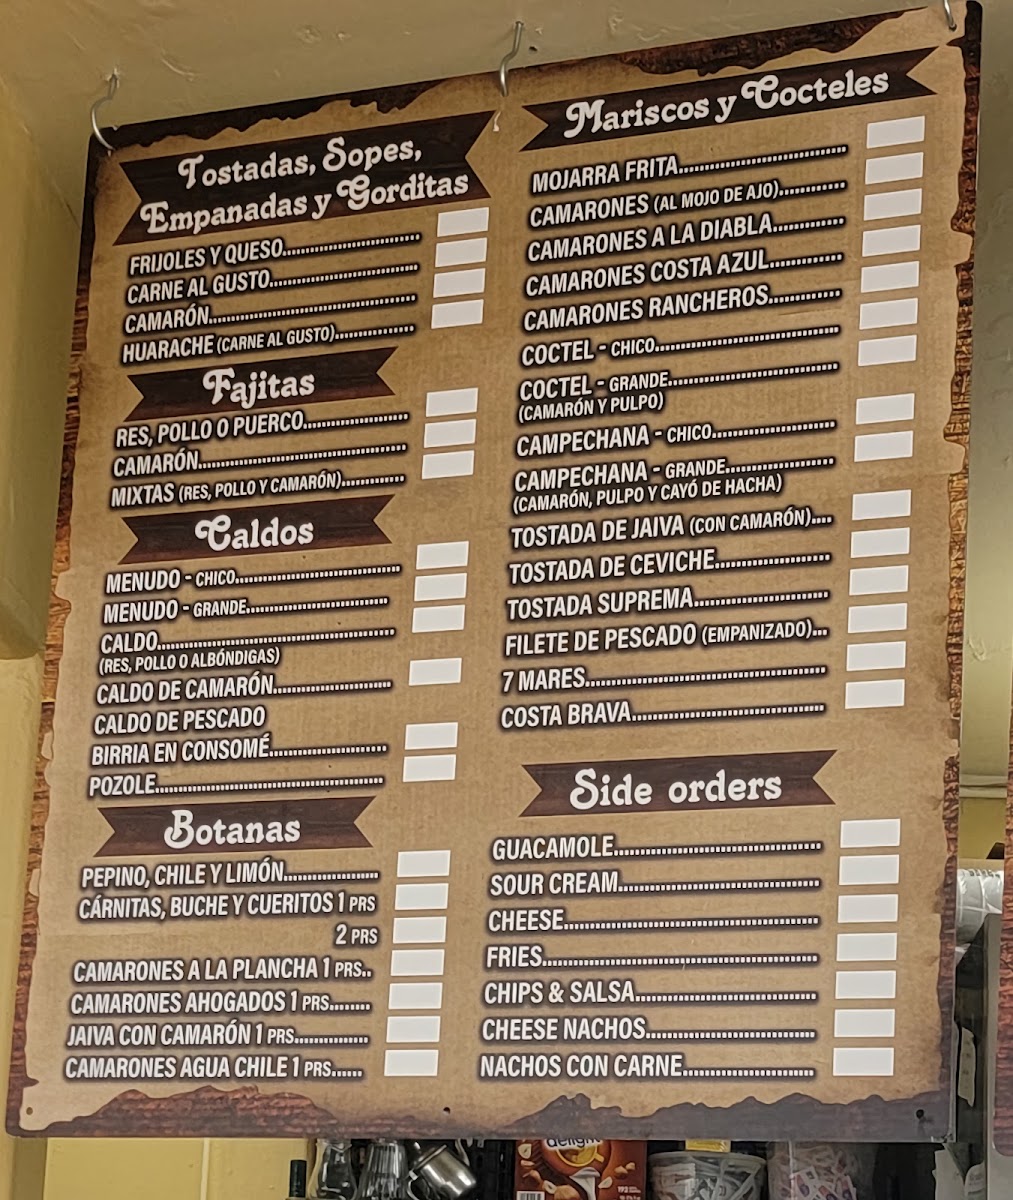 Tostadas, Sopes,
Empanadas y Gorditas
FRIJOLES Y QUESO
CARNE AL GUSTO
CAMARÓN
HUARACHE (CARNE AL GUSTO)
Fajitas
RES, POLLO O PUERCO
CAMARÓN
MIXTAS (RES, POLLO Y CAMARÓN)
Caldos
MENUDO - CHICO
MENUDO - GRANDE
CALDO
(RES, POLLO O ALBÓNDIGAS)
CALDO DE CAMARÓN
CALDO DE PESCADO
BIRRIA EN CONSOMÉ
POZOLE
Botanas
PEPINO, CHILE Y LIMÓN
CÁRNITAS, BUCHE Y CUERITOS 1 PRS
2 PRS
CAMARONES A LA PLANCHA 1 PRS..
CAMARONES AHOGADOS 1 PRS
JAIVA CON CAMARÓN 1 PRS
CAMARONES AGUA CHILE 1 PRS
Mariscos y Cocteles
MOJARRA FRITA
CAMARONES (AL MOJO DE AJO)
CAMARONES A LA DIABLA
CAMARONES COSTA AZUL
CAMARONES RANCHEROS
COCTEL - CHICO
COCTEL - GRANDE
(CAMARÓN Y PULPO)
CAMPECHANA - CHICO
CAMPECHANA - GRANDE
(CAMARÓN, PULPO Y CAYÓ DE HACHA)
TOSTADA DE JAIVA (CON CAMARÓN)
TOSTADA DE CEVICHE
TOSTADA SUPREMA
FILETE DE PESCADO (EMPANIZADO)...
7 MARES
COSTA BRAVA
Side orders
GUACAMOLE
SOUR CREAM
CHEESE
FRIES
CHIPS & SALSA
CHEESE NACHOS
NACHOS CON CARNE
delight